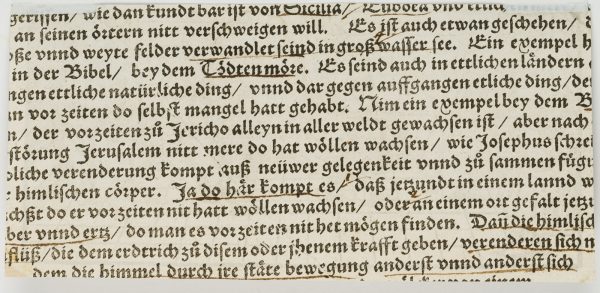 gerissen/ wie dan kundtbar ist von Sicilia/ Euboea vnd
an seinen örtern nitt verschweigen will. Es ist auch etwan geschehen/
ße vnnd weyte felder verwandlet seind in groß wasser see. Ein exempel h
in der Bibel/ bey dem Tödten möre. Es seind auch in ettlichen ländern
ngen ettliche natürliche ding/ vnnd dar gegen auffgangen etliche ding/ de
an vor zeiten do selbst mangel hatt gehabt. Nim ein exempel bey dem B
n/ der vorzeiten zů Jericho alleyn in aller weldt gewachsen ist/ aber nach
störung Jerusalem nitt mere do hat wöllen wachsen/ wie Josephus schrei
liche verenderung kompt auß neüwer gelegenheit vnnd zů sammen fügu
r himlischen cörper. Ja do här kompt es/ daß jetzundt in einem lannd w
chßt do er vor zeiten nit hatt wöllen wachsen/ oder an einem ort gefalt jetzu
ber vnnd ertz/ do man es vor zeiten nit het mögen finden. Dañ die himlisch
flüß/ die dem erdtrich zů disem oder jhenem krafft geben/ verenderen sich n
dem die himmel durch jre stäte bewegung anderst vnnd anderst sich